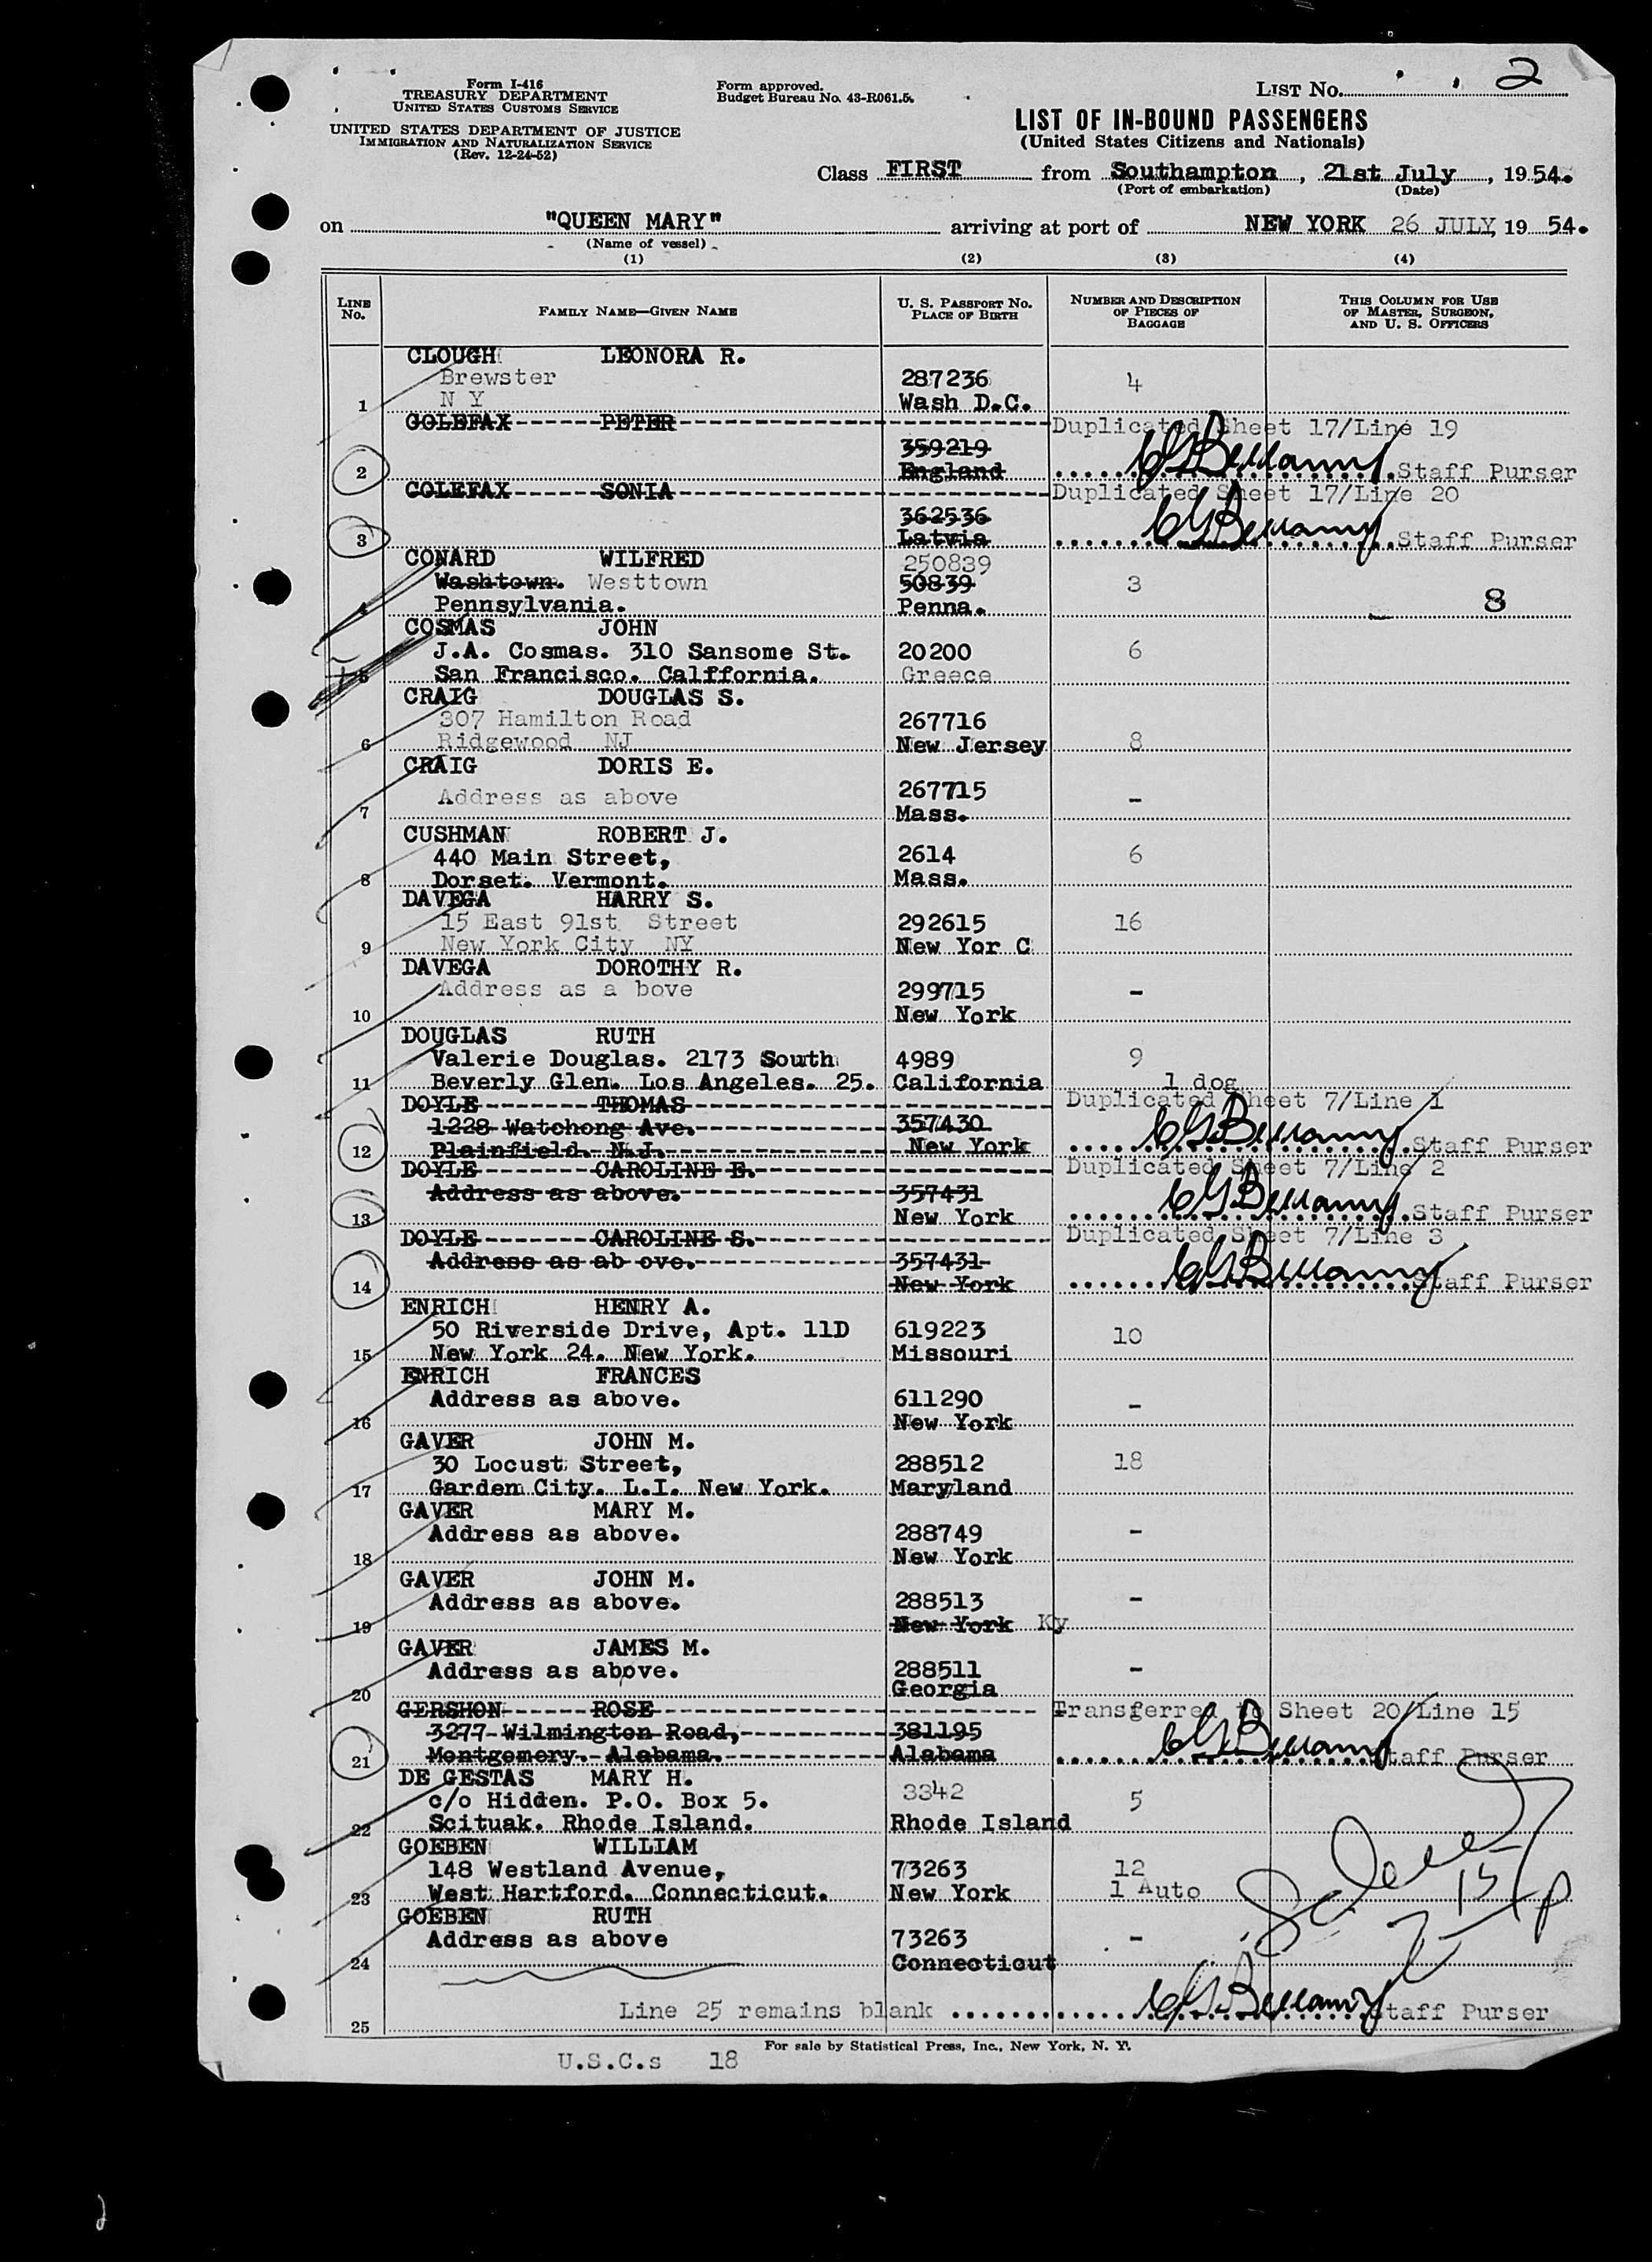 Form I-416
TREASURY DEPARTMENT
UNITED STATES CUSTOMS SERVICE
UNITED STATES DEPARTMENT OF JUSTICE
IMMIGRATION AND NATURALIZATION SERVICE
(Rev. 12-24-52)
Form approved.
Budget Bureau No. 43-R061.5.
LIST No. 2
LIST OF IN-BOUND PASSENGERS
(United States Citizens and Nationals)
Class FIRST from Southampton, 21st July, 1954.
(Port of embarkation) (Date)
on "QUEEN MARY" arriving at port of NEW YORK 26 JULY, 1954.
(Name of vessel)
(1) (2) (3) (4)
LINE No. FAMILY NAME—GIVEN NAME U. S. PASSPORT No. PLACE OF BIRTH NUMBER AND DESCRIPTION OF PIECES OF BAGGAGE THIS COLUMN FOR USE OF MASTER, SURGEON, AND U. S. OFFICERS
CLOUGH LEONORA R.
Brewster 287236 4
1 N Y Wash D.C.
COLEFAX PETER Duplicated Sheet 17/Line 19
359219
2 England CGBellamy Staff Purser
COLEFAX SONIA Duplicated Sheet 17/Line 20
362536
3 Latvia CGBellamy Staff Purser
CONARD WILFRED 250839
Washtown. Westtown 50839 3
4 Pennsylvania. Penna. 8
COSMAS JOHN
J.A. Cosmas. 310 Sansome St. 20200 6
5 San Francisco. Calffornia. Greece
CRAIG DOUGLAS S.
307 Hamilton Road 267716
6 Ridgewood NJ New Jersey 8
CRAIG DORIS E.
Address as above 267715 -
7 Mass.
CUSHMAN ROBERT J.
440 Main Street, 2614 6
8 Dorset. Vermont. Mass.
DAVEGA HARRY S.
15 East 91st Street 292615 16
9 New York City NY New Yor C
DAVEGA DOROTHY R.
Address as a bove 299715 -
10 New York
DOUGLAS RUTH
Valerie Douglas. 2173 South 4989 9
11 Beverly Glen. Los Angeles. 25. California 1 dog
DOYLE THOMAS Duplicated Sheet 7/Line 1
1228 Watchong Ave. 357430
12 Plainfield. N.J. New York CGBellamy Staff Purser
DOYLE CAROLINE E. Duplicated Sheet 7/Line 2
Address as above. 357431
13 New York CGBellamy Staff Purser
DOYLE CAROLINE S. Duplicated Sheet 7/Line 3
Address as ab ove. 357431
14 New York CGBellamy Staff Purser
ENRICH HENRY A.
50 Riverside Drive, Apt. 11D 619223 10
15 New York 24. New York. Missouri
ENRICH FRANCES
Address as above. 611290 -
16 New York
GAVER JOHN M.
30 Locust Street, 288512 18
17 Garden City. L.I. New York. Maryland
GAVER MARY M.
Address as above. 288749 -
18 New York
GAVER JOHN M.
Address as above. 288513 -
19 New York Ky
GAVER JAMES M.
Address as above. 288511 -
20 Georgia
GERSHON ROSE Transferred to Sheet 20/Line 15
3277 Wilmington Road, 381195
21 Montgomery. Alabama. Alabama CGBellamy Staff Purser
DE GESTAS MARY H.
c/o Hidden. P.O. Box 5. 3342 5
22 Scituak. Rhode Island. Rhode Island
GOEBEN WILLIAM
148 Westland Avenue, 73263 12
23 West Hartford. Connecticut. New York 1 Auto
GOEBEN RUTH
Address as above 73263 -
24 Connecticut
Line 25 remains blank CGBellamy Staff Purser
25
For sale by Statistical Press, Inc., New York, N. Y.
U.S.C.s 18